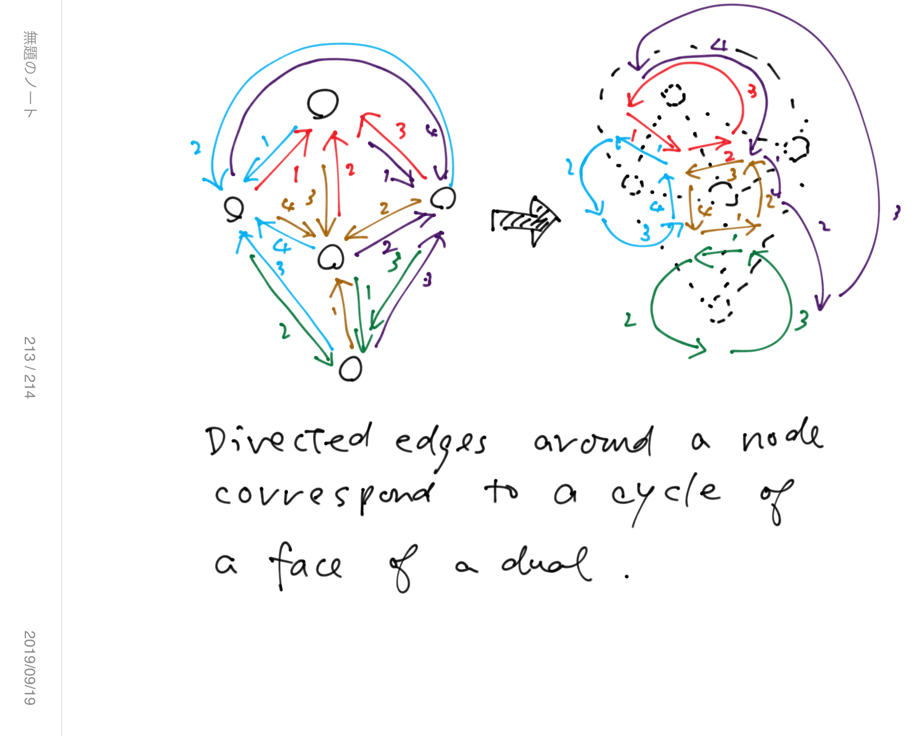 無題のノート
213 / 214
2019/09/19
2 1 1 2 3 3 4 1
4 3 2 2
4 3 2 3 3
2 1 1
4
3
1 2
2 1 3 1
4 4 2 2 3
3 1
1
2 3
Directed edges around a node
correspond to a cycle of
a face of a dual.